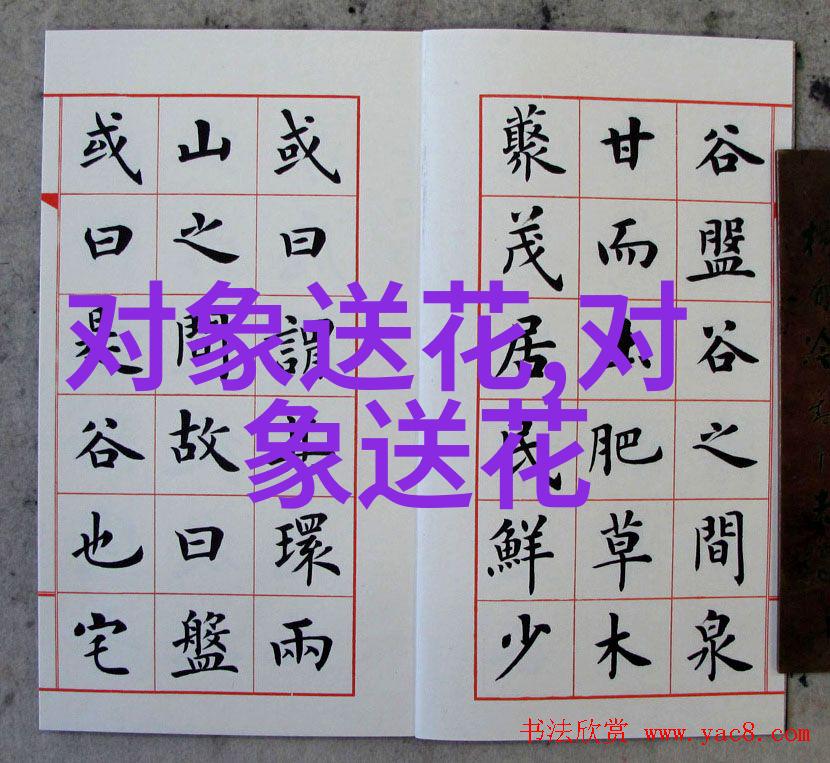 谷盤谷之間泉
甘而土肥草木
藂茂居民鮮少
或曰謂其環兩
山之間故曰盤
或曰是谷也宅
对象送花,对
象送花
书法欣赏 www.yac8.com